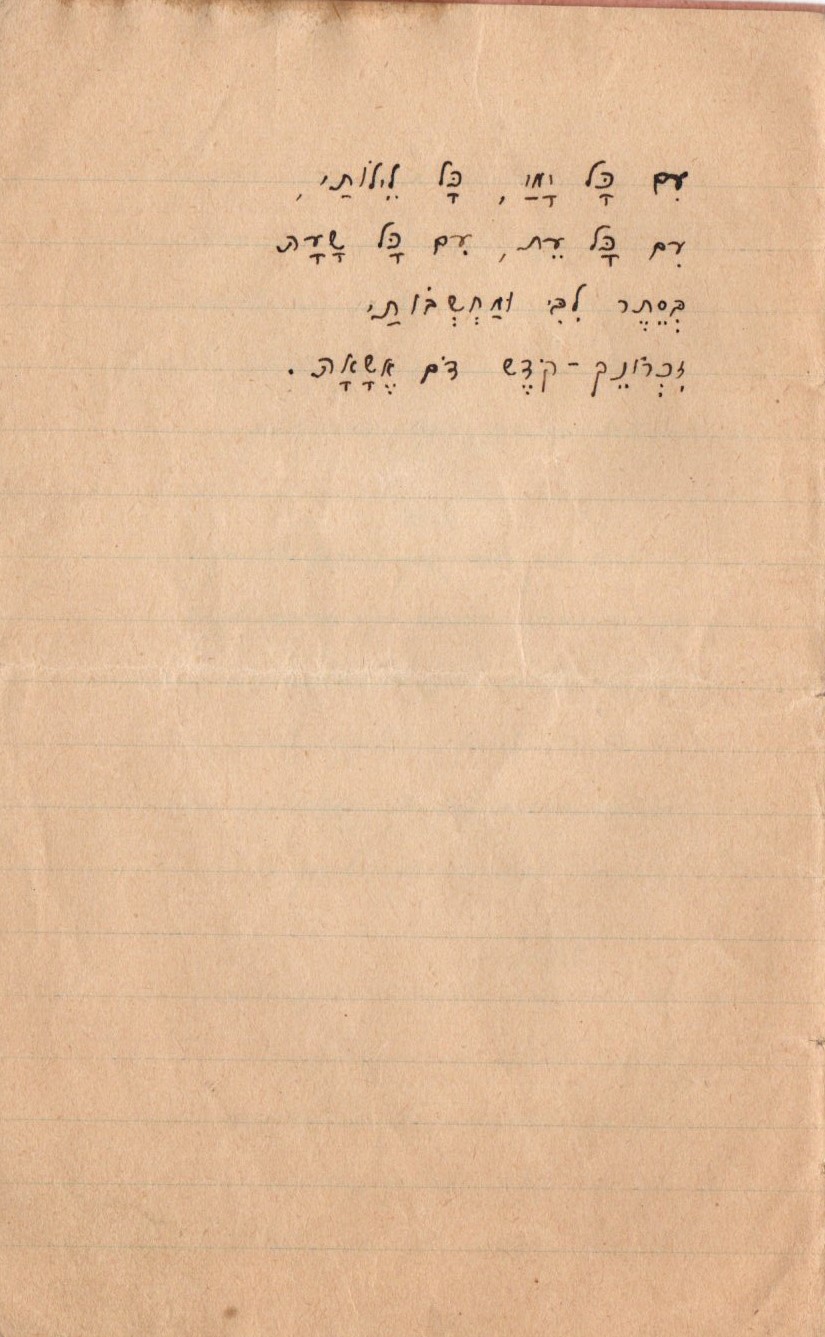 עִם כָּל יָמַי, כָּל לֵילוֹתַי,
עִם כָּל עֵת, עִם כָּל שָׁעָה
בְּסֵתֶר לִבִּי וּמַחְשְׁבוֹתַי
זִכְרוֹנֵךְ - קֹדֶשׁ דֹּם אֶשָּׂאָה.